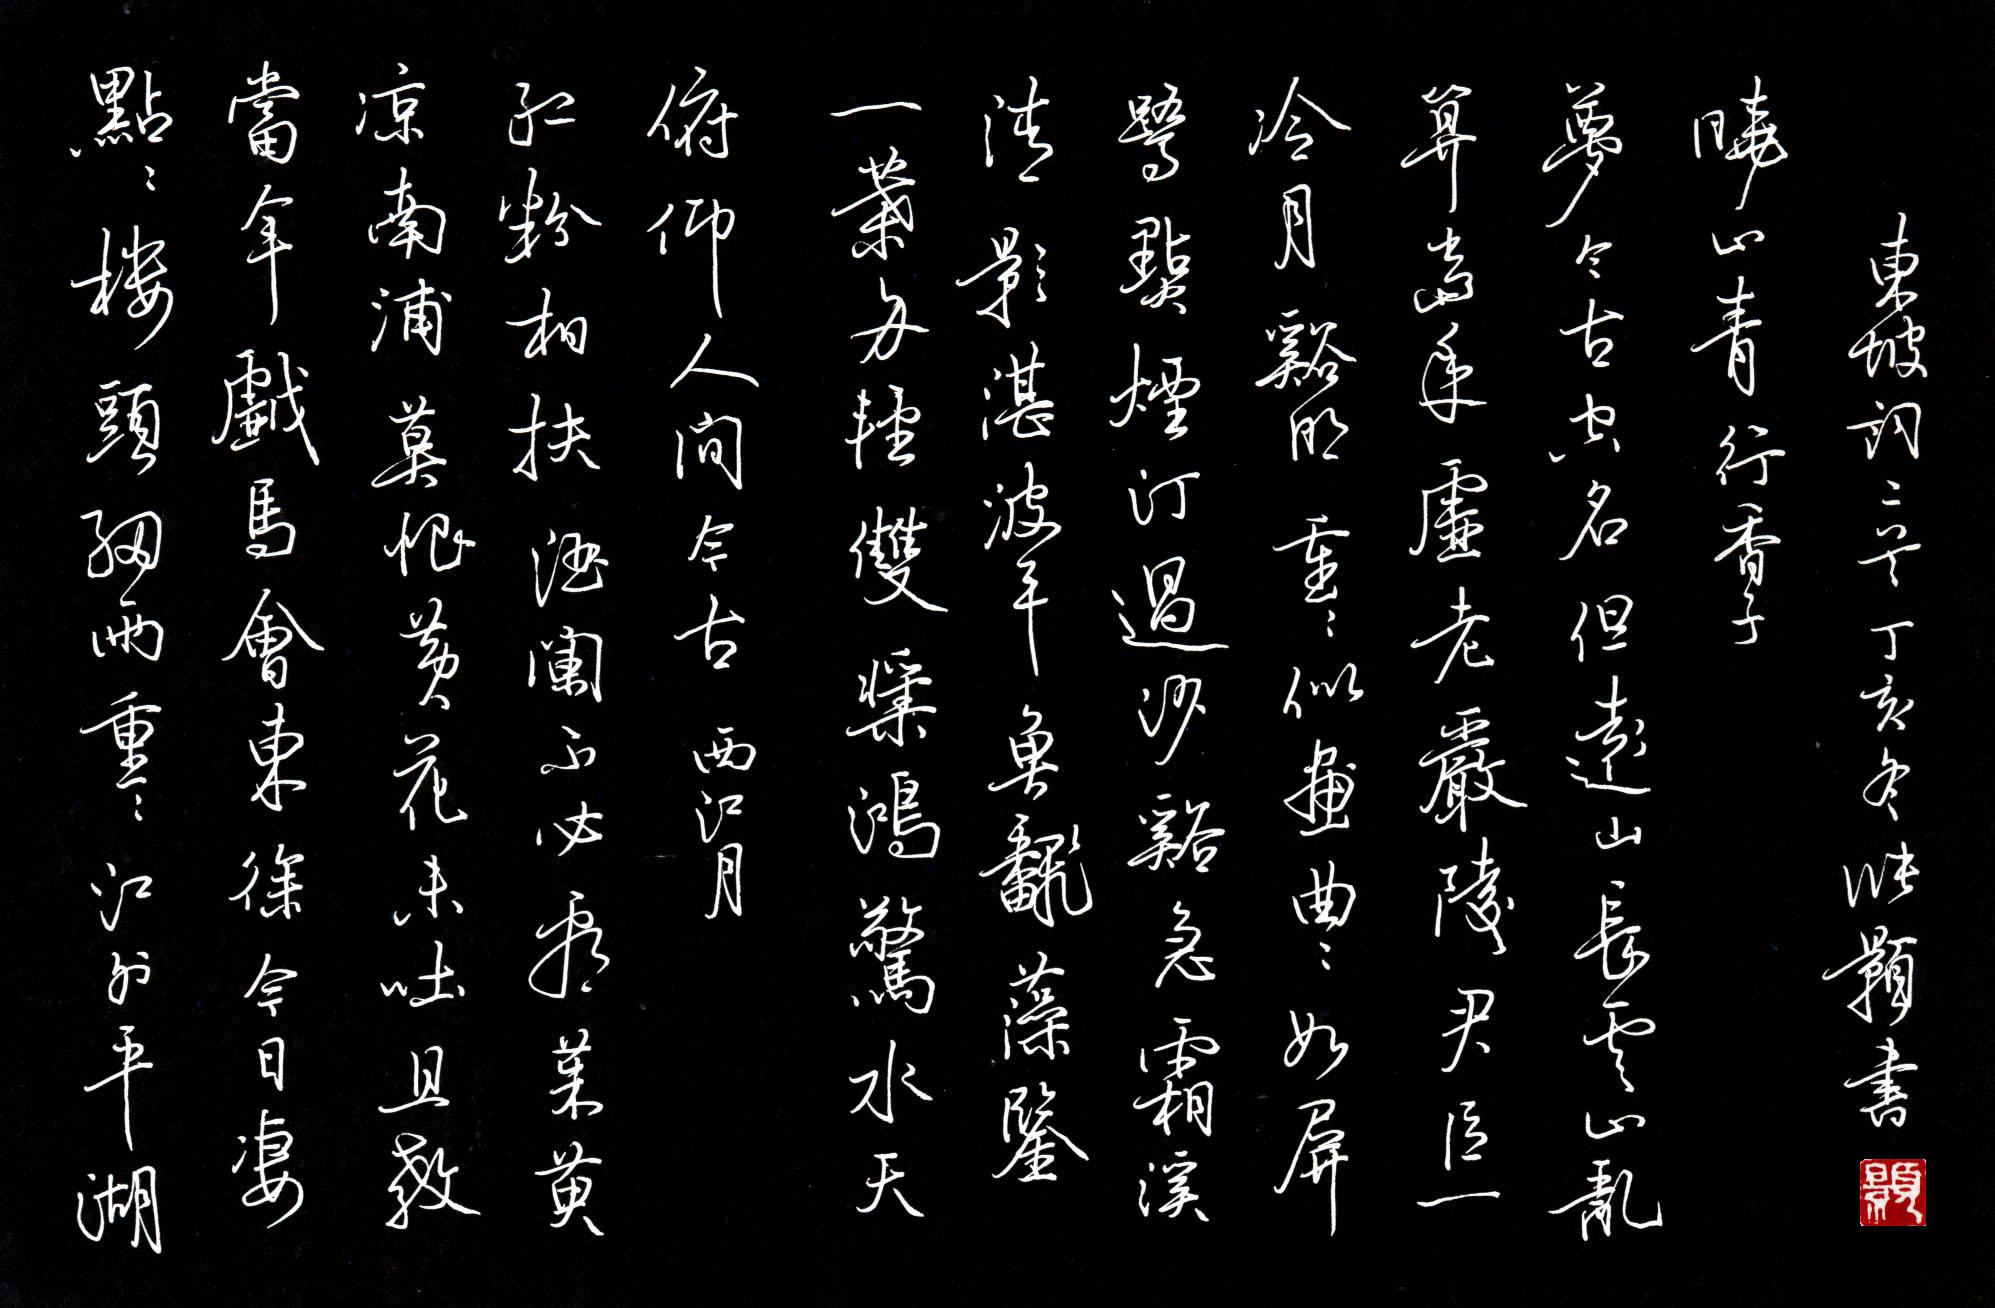 點〻樓頭細雨重〻江外平湖
當年戲馬會東徐今日凄
涼南浦莫恨黃花未吐且教
紅粉相扶酒闌不必看茱萸
俯仰人間今古 西江月
一葉舟輕雙槳鴻驚水天
清影湛波平魚翻藻鑒
鷺點煙汀過沙谿急霜溪
冷月谿明重〻似畫曲〻如屏
算當年虛老嚴陵君臣一
夢今古空名但遠山長雲山亂
曉山青 行香子
東坡詞二首丁亥冬張顥書